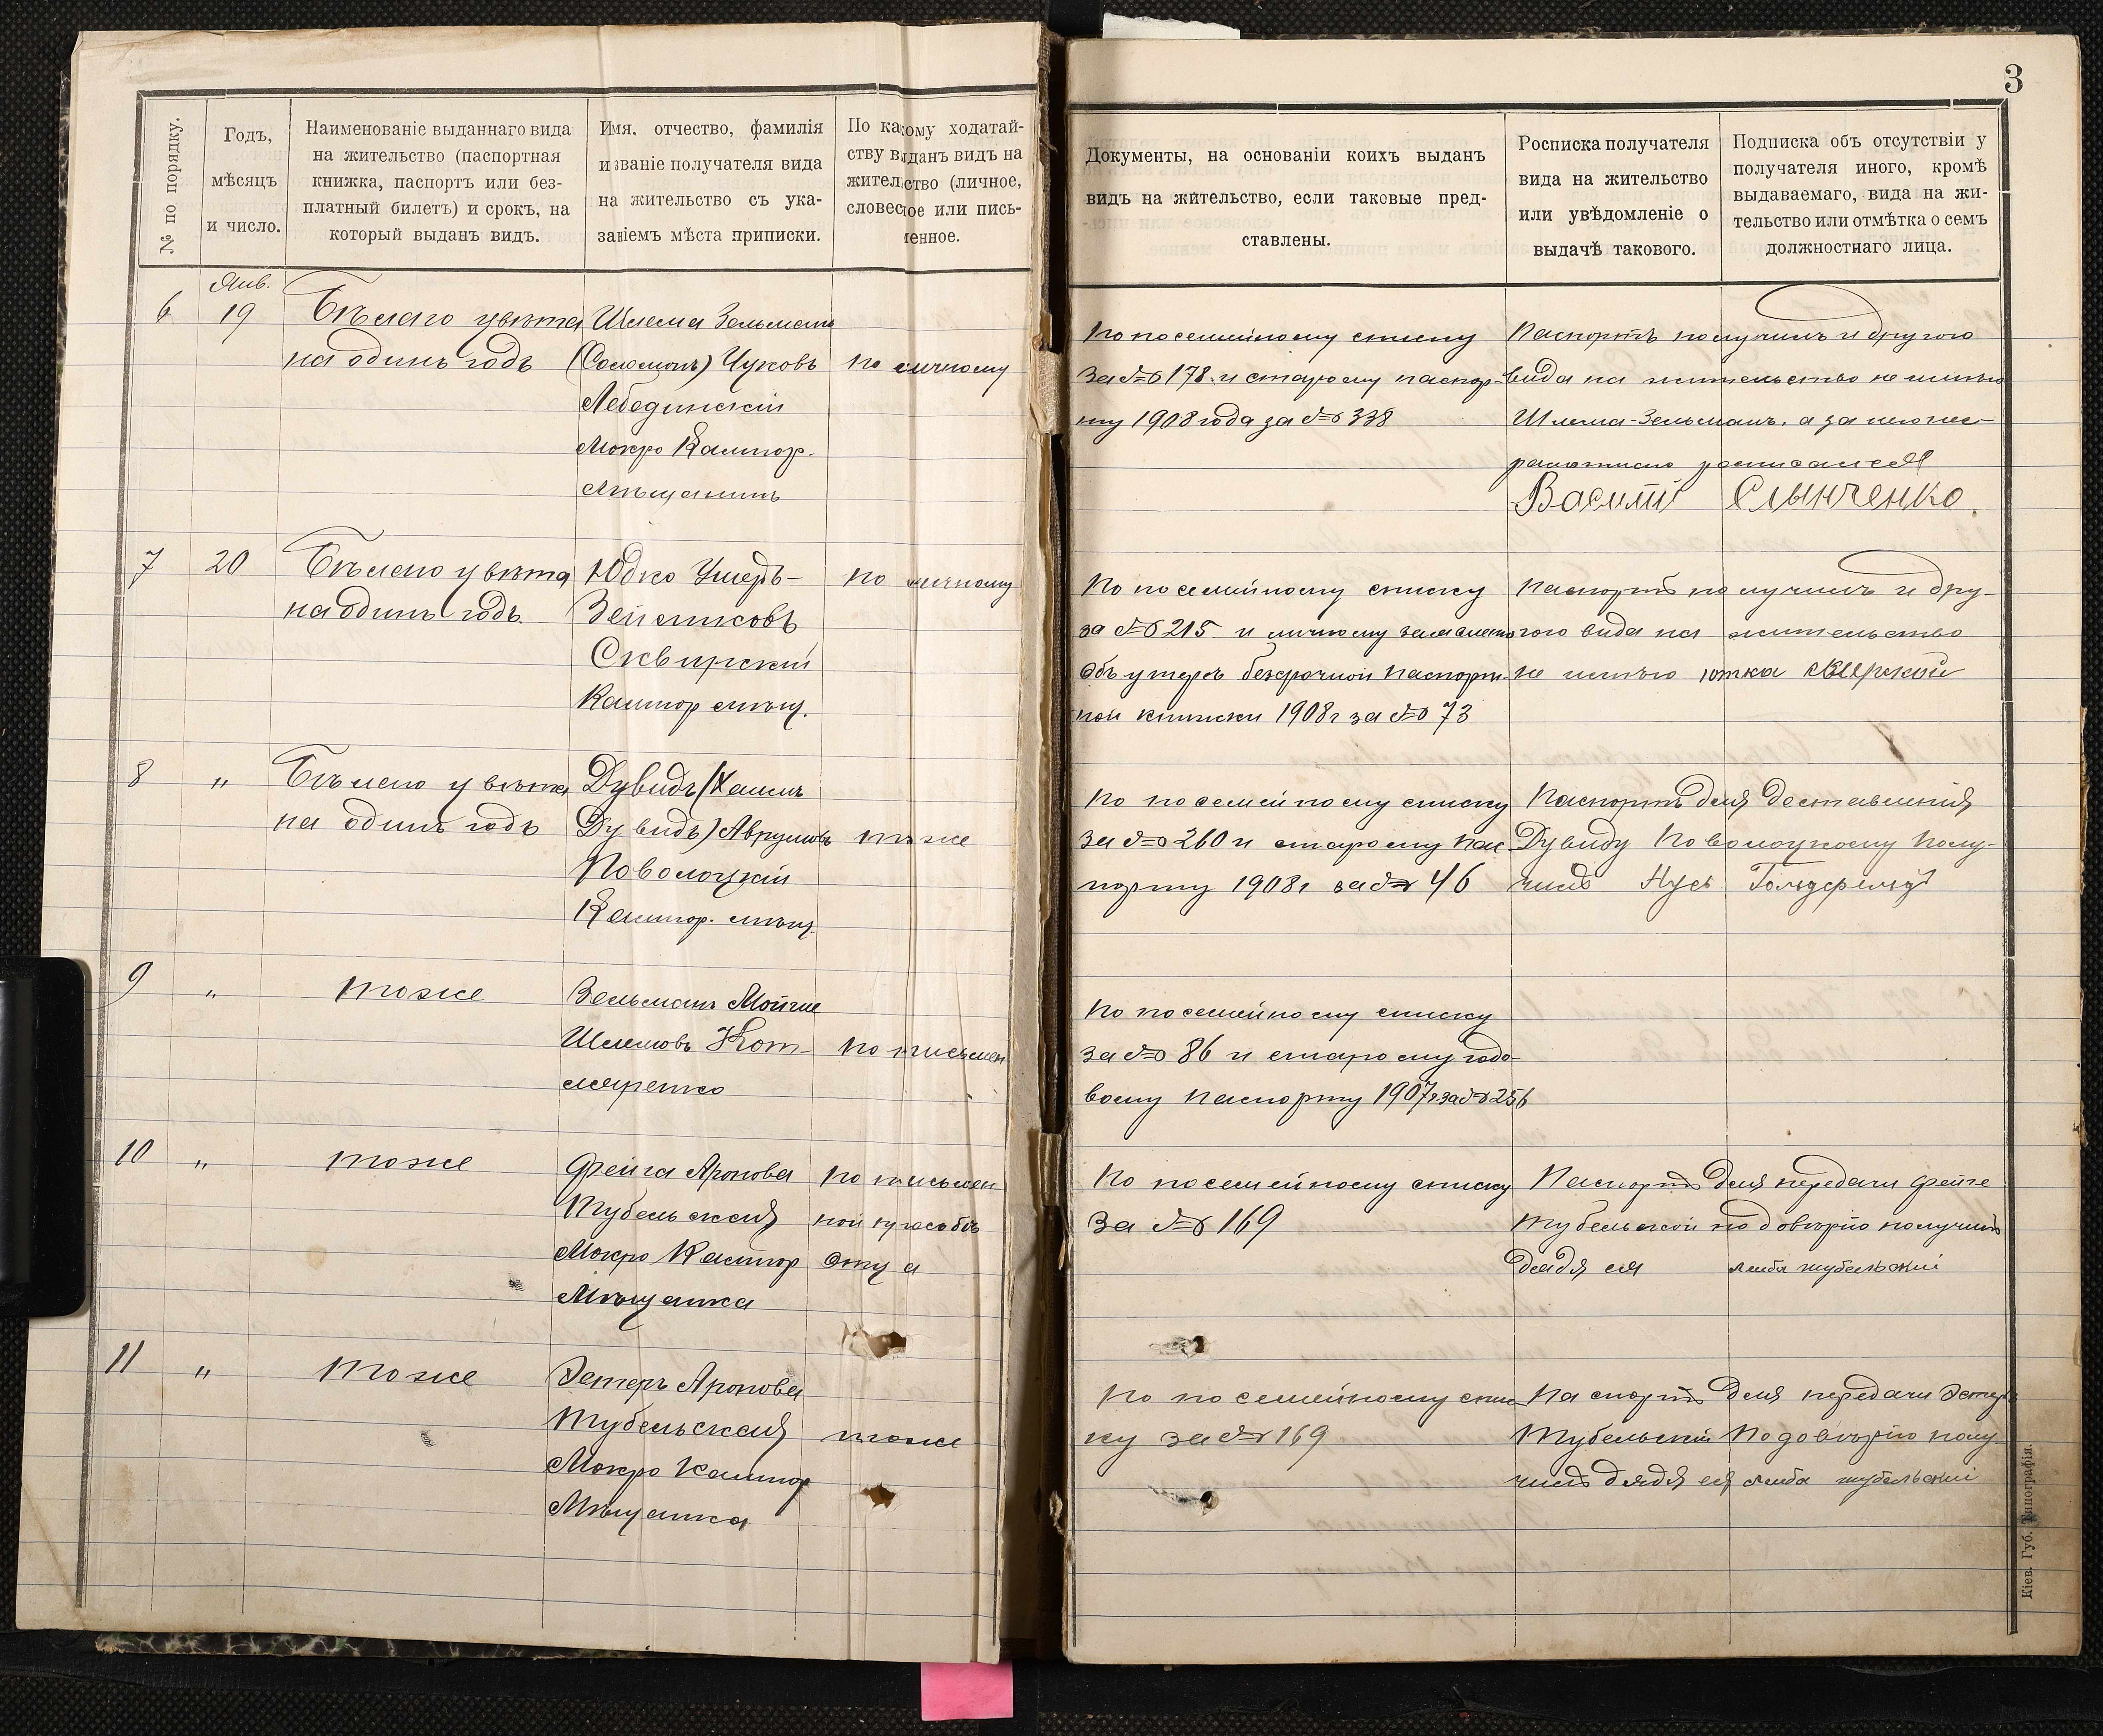 3
№ по порядку.
Годъ,
мѣсяцъ
и число.
Наименованіе выданнаго вида
на жительство (паспортная
книжка, паспортъ или без-
платный билетъ) и срокъ, на
который выданъ видъ.
Имя, отчество, фамилія
и званіе получателя вида
на жительство съ ука-
заніемъ мѣста приписки.
По какому ходатай-
ству выданъ видъ на
жительство (личное,
словесное или пись-
менное.
Документы, на основаніи коихъ выданъ
видъ на жительство, если таковые пред-
ставлены.
Росписка получателя
вида на жительство
или увѣдомленіе о
выдачѣ такового.
Подписка объ отсутствіи у
получателя иного, кромѣ
выдаваемаго, вида на жи-
тельство или отмѣтка о семъ
должностнаго лица.
Янв.
6
19
Бѣлаго цвѣта
на одинъ годъ
Шлема Зельманъ
(Соломонъ) Чуковъ
Лебединскій
Мокро Калигор.
Мѣщанинъ
По личному
По посемейному списку
за № 178. и старому паспор-
ту 1908 года за № 338
Паспортъ получилъ и другого
вида на жительство не имѣю
Шлема-Зельманъ, а за него не-
грамотнаго росписался
Василій Слынченко.
7
20
Бѣлаго цвѣта
на одинъ годъ
Юдко Ушеръ-
Зейликовъ
Сквирскій
Калигор мѣщ.
По личному
По посемейному списку
за № 215 и личному заявлению
объ утерѣ безсрочной паспорт-
ной книжки 1908 г за № 73
Паспортъ получилъ и дру-
гого вида на жительство
не имѣю ютка сквирской
8
"
Бѣлаго цвѣта
на одинъ годъ
Дувидъ (Хаимъ
Дувидъ) Аврумовъ
Поволоцкій
Калигор. мѣщ.
тоже
По посемейному списку
за № 260 и старому пас
порту 1908 г за № 46
Паспортъ для доставленія
Дувиду Поволоцкому полу-
чилъ Нусь Гольдфельдъ
9
"
тоже
Зельманъ Мойше
Шлемовъ Кот-
ляренко
по письмен
По посемейному списку
за № 86 и старому годо-
вому паспорту 1907 г за № 256
10
"
тоже
Фейга Аронова
Тубельская
Мокро Калигор
Мѣщанка
по письмен
ной просьбѣ
отца
По посемейному списку
за № 169
Паспортъ для передачи Фейге
Тубельской по довѣрію получилъ
дядя ея лейба тубельский
11
"
тоже
Эстеръ Аронова
Тубельская
Мокро Калигор
Мѣщанка
тоже
По посемейному спис
ку за № 169
Паспортъ для передачи Эстеръ
Тубельской по довѣрію полу-
чилъ дядя ея лейба тубельский
Кіев. Губ. Типографія.